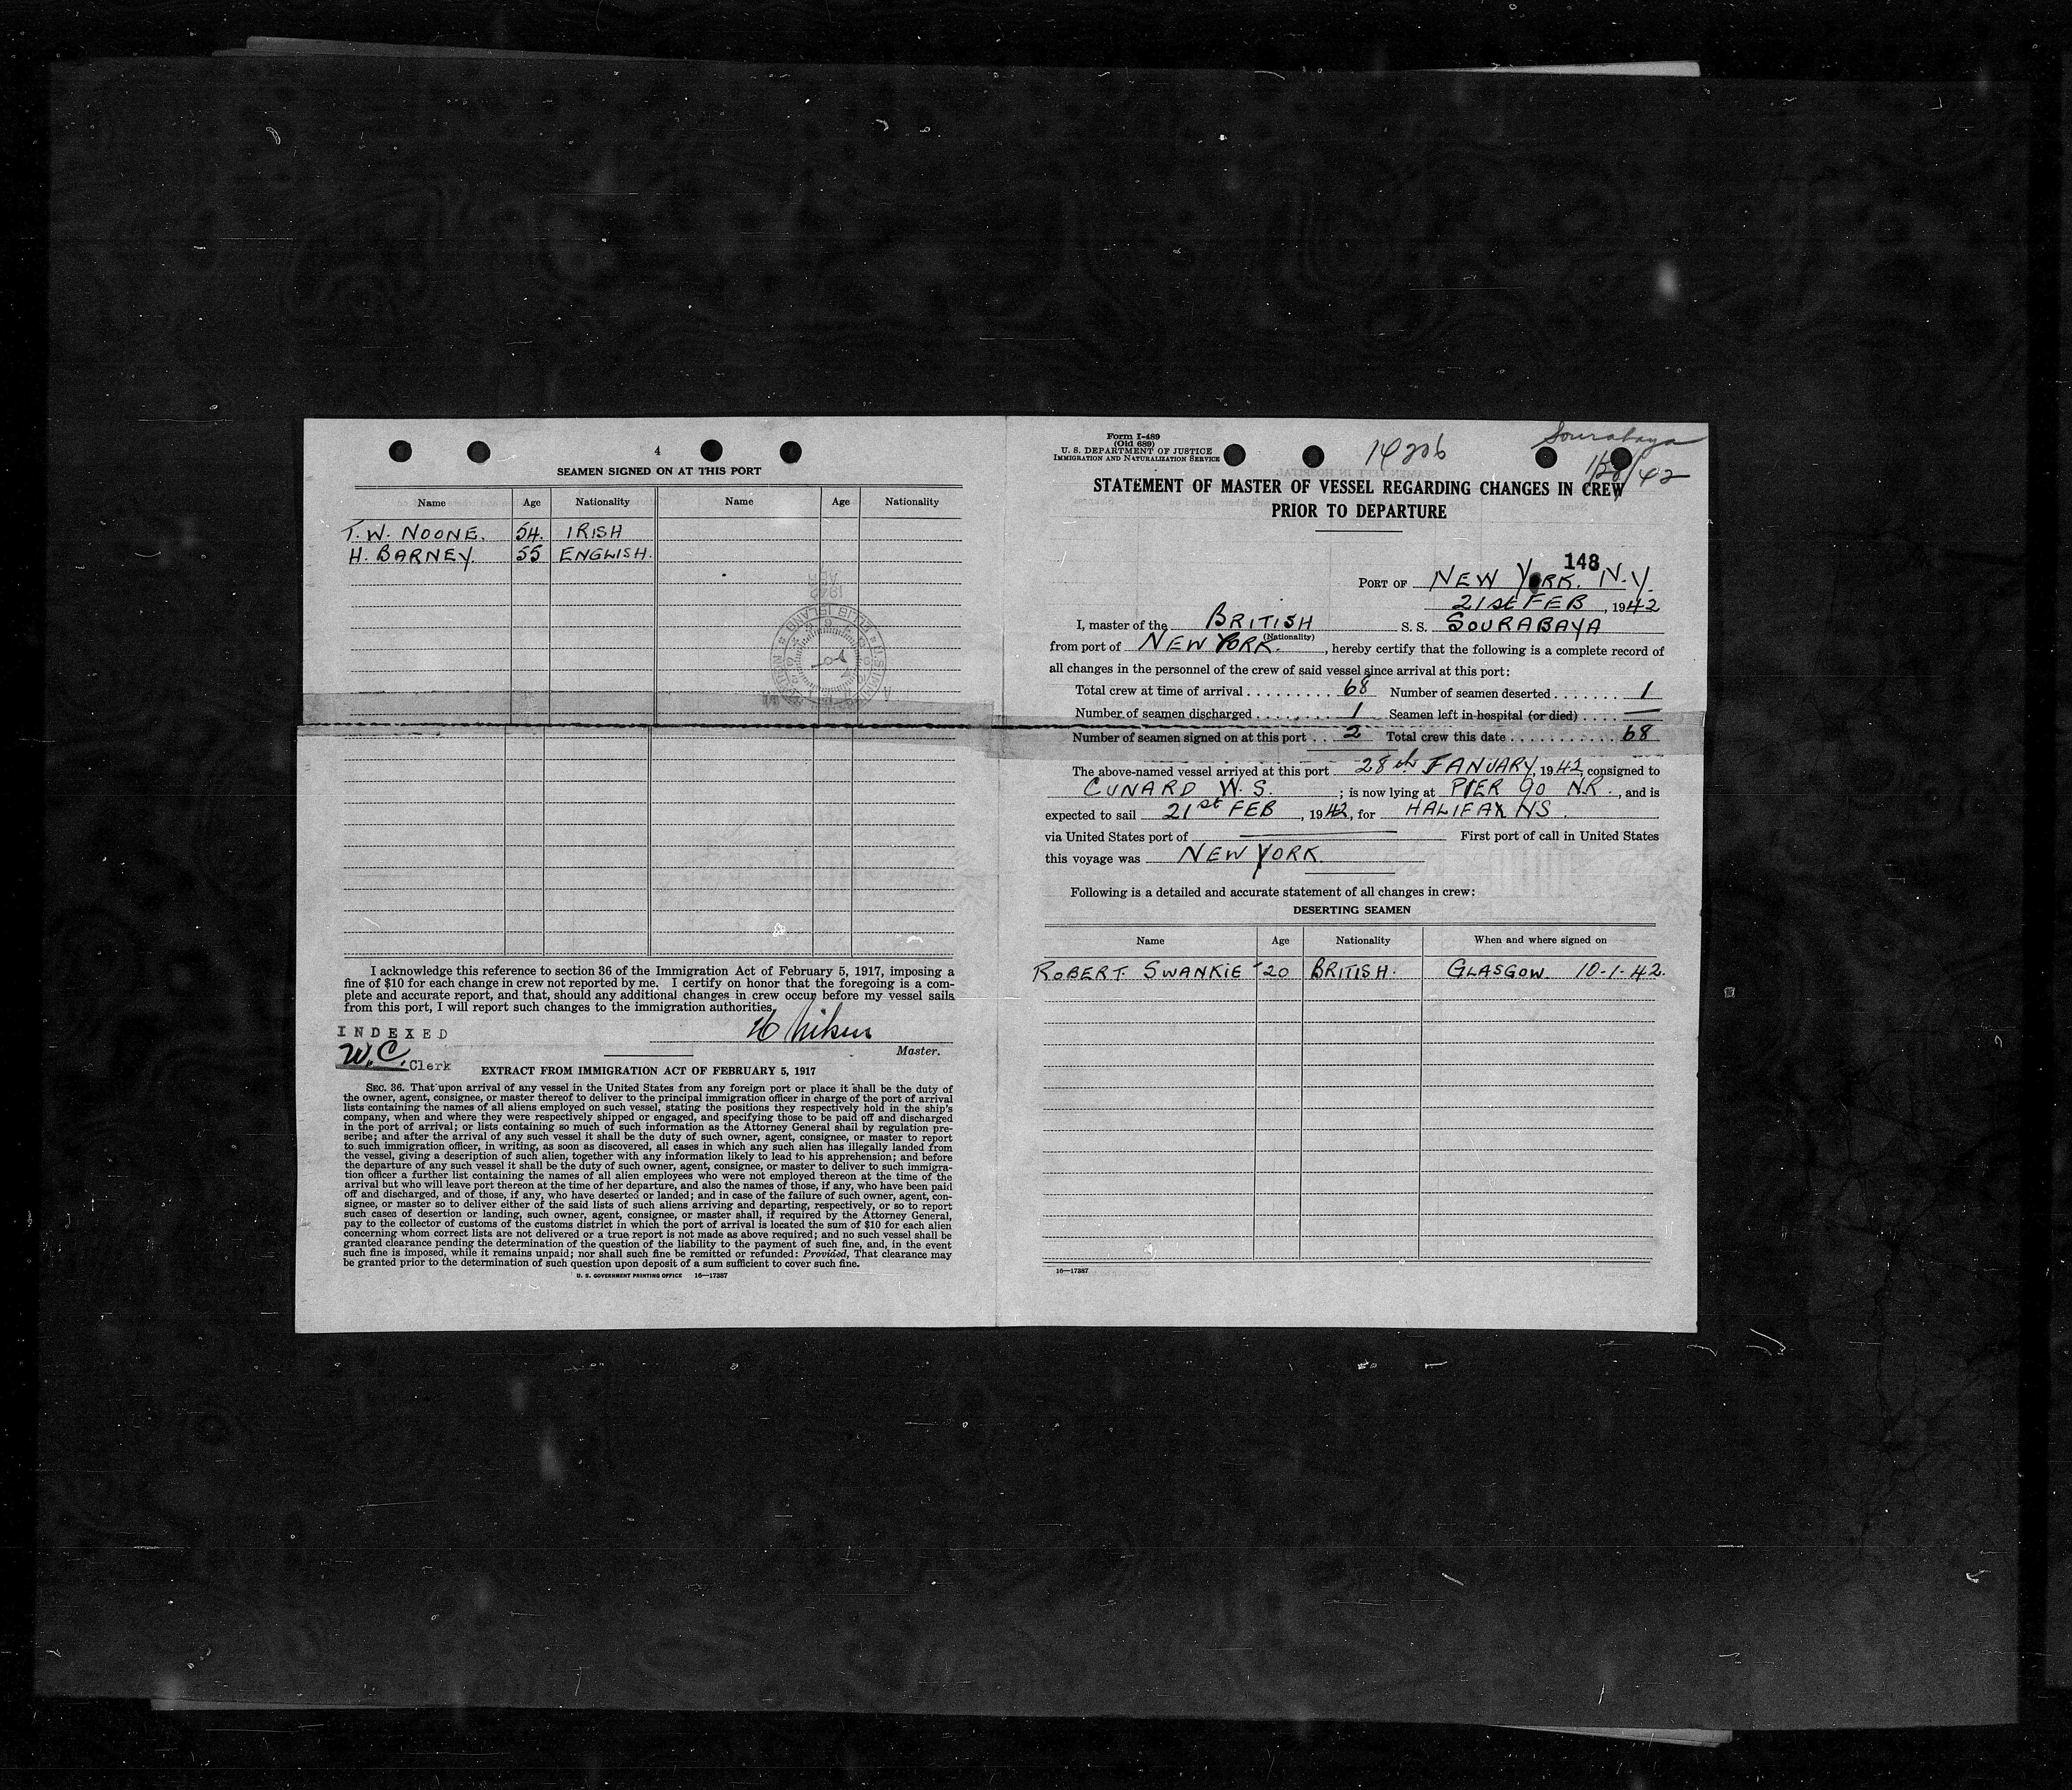 4
SEAMEN SIGNED ON AT THIS PORT
Name Age Nationality Name Age Nationality
T. W. NOONE. 54. IRISH
H. BARNEY. 55 ENGLISH.
I acknowledge this reference to section 36 of the Immigration Act of February 5, 1917, imposing a
fine of $10 for each change in crew not reported by me. I certify on honor that the foregoing is a com-
plete and accurate report, and that, should any additional changes in crew occur before my vessel sails
from this port, I will report such changes to the immigration authorities.
INDEXED
W.C. Clerk
Master.
EXTRACT FROM IMMIGRATION ACT OF FEBRUARY 5, 1917
SEC. 36. That upon arrival of any vessel in the United States from any foreign port or place it shall be the duty of
the owner, agent, consignee, or master thereof to deliver to the principal immigration officer in charge of the port of arrival
lists containing the names of all aliens employed on such vessel, stating the positions they respectively hold in the ship's
company, when and where they were respectively shipped or engaged, and specifying those to be paid off and discharged
in the port of arrival; or lists containing so much of such information as the Attorney General shall by regulation pre-
scribe; and after the arrival of any such vessel it shall be the duty of such owner, agent, consignee, or master to report
to such immigration officer, in writing, as soon as discovered, all cases in which any such alien has illegally landed from
the vessel, giving a description of such alien, together with any information likely to lead to his apprehension; and before
the departure of any such vessel it shall be the duty of such owner, agent, consignee, or master to deliver to such immigra-
tion officer a further list containing the names of all alien employees who were not employed thereon at the time of the
arrival but who will leave port thereon at the time of her departure, and also the names of those, if any, who have been paid
off and discharged, and of those, if any, who have deserted or landed; and in case of the failure of such owner, agent, con-
signee, or master so to deliver either of the said lists of such aliens arriving and departing, respectively, or so to report
such cases of desertion or landing, such owner, agent, consignee, or master shall, if required by the Attorney General,
pay to the collector of customs of the customs district in which the port of arrival is located the sum of $10 for each alien
concerning whom correct lists are not delivered or a true report is not made as above required; and no such vessel shall be
granted clearance pending the determination of the question of the liability to the payment of such fine, and, in the event
such fine is imposed, while it remains unpaid; nor shall such fine be remitted or refunded: Provided, That clearance may
be granted prior to the determination of such question upon deposit of a sum sufficient to cover such fine.
U. S. GOVERNMENT PRINTING OFFICE 16—17387
Form I-489
(Old 689)
U. S. DEPARTMENT OF JUSTICE
IMMIGRATION AND NATURALIZATION SERVICE
14206
Sourabaya
1/28/42
STATEMENT OF MASTER OF VESSEL REGARDING CHANGES IN CREW
PRIOR TO DEPARTURE
148
PORT OF NEW YORK. N.Y.
21st FEB, 1942
I, master of the BRITISH S. S. SOURABAYA
(Nationality)
from port of NEW YORK., hereby certify that the following is a complete record of
all changes in the personnel of the crew of said vessel since arrival at this port:
Total crew at time of arrival . . . . . . . . . . 68 Number of seamen deserted . . . . . . . 1
Number of seamen discharged . . . . . . . 1 Seamen left in hospital (or died) . . . . —
Number of seamen signed on at this port . . 2 Total crew this date . . . . . . . . . . . . 68
The above-named vessel arrived at this port 28th JANUARY, 1942, consigned to
CUNARD W. S. ; is now lying at PIER 90 N.R., and is
expected to sail 21st FEB, 1942, for HALIFAX NS.
via United States port of —— First port of call in United States
this voyage was NEW YORK.
Following is a detailed and accurate statement of all changes in crew:
DESERTING SEAMEN
Name Age Nationality When and where signed on
ROBERT SWANKIE 20 BRITISH. GLASGOW 10-1-42.
16—17387